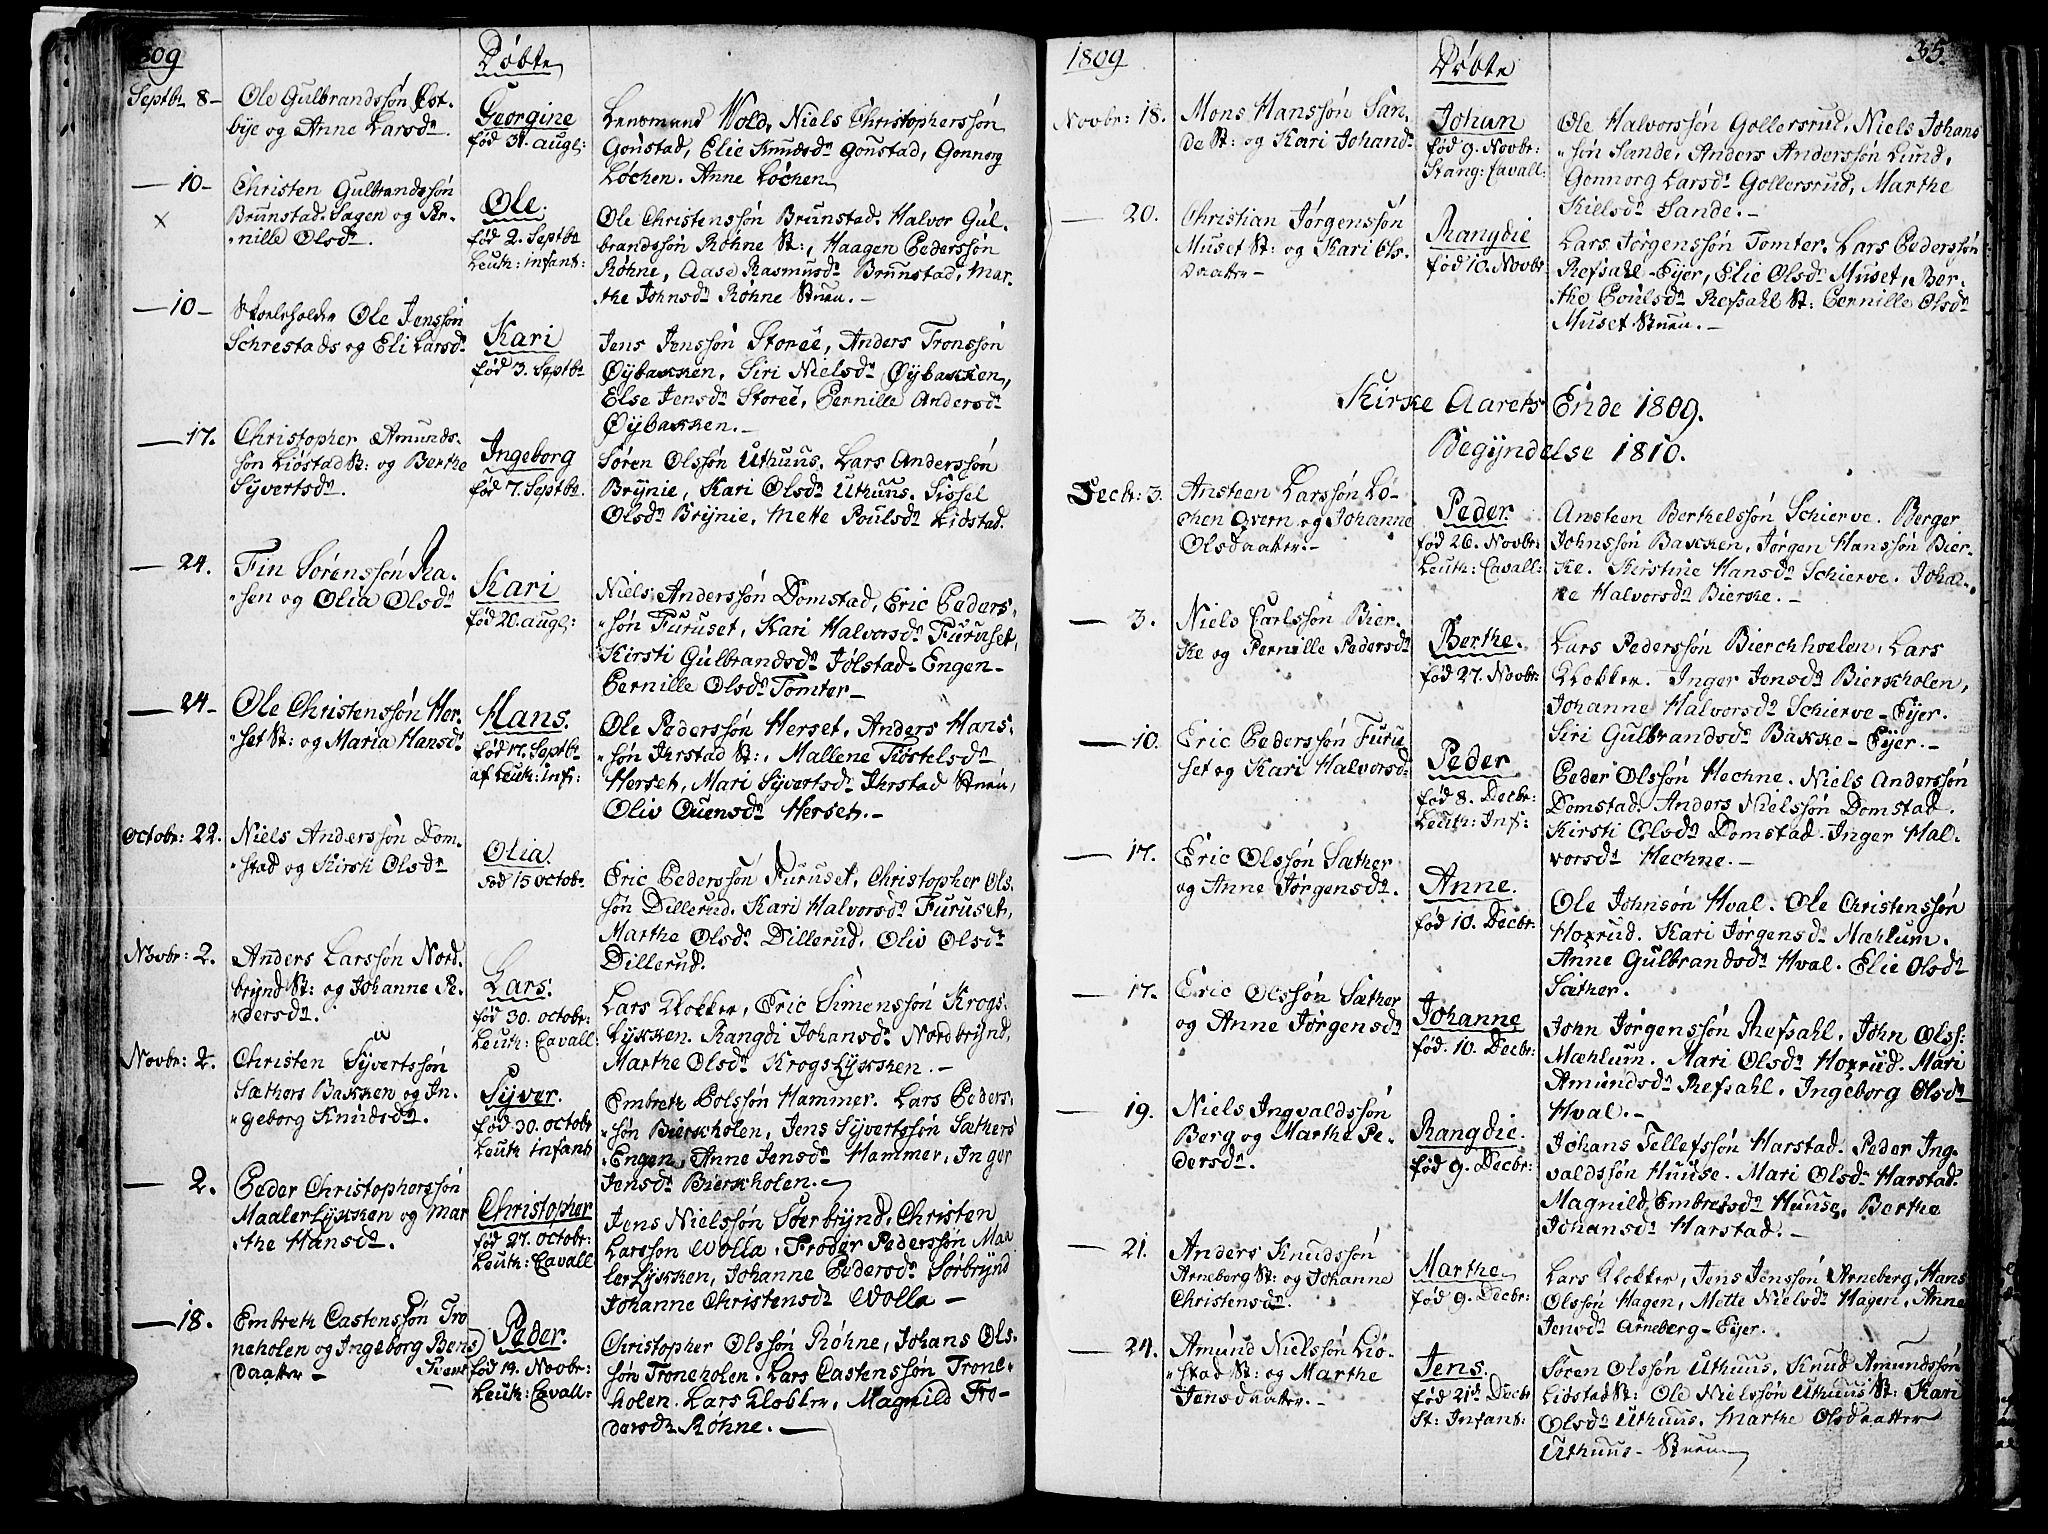 1809
Døbte
Septbr 8 –
Ole Gulbrandssøn Øst-
bÿe og Anne Larsdr.
Georgine
fød 31. augl:
Lensmand Wold, Niels Christopherssøn
Goüstad, Elie Knudsdr Goustad, Gonnorg
Løchen. Anne Løchen
— 10 –
×
Christen Gulbrandssøn
Brunstad-Sagen og Per-
nille Olsdr.
Ole.
fød 2. Septbr
Leuth: infant:
Ole Christenssøn Brunstad. Halvor Gul-
brandssøn Røhne St:, Haagen Pederssøn
Røhne, Aase Rasmusdr Brunstad, Mar-
the Johnsdr Røhne Stuen. –
— 10 –
Skoeleholder Ole Jenssøn
Schrestads og Eli Larsdr
Kari
fød 3. Septbr
Jens Jenssøn Storeë, Anders Tronssøn
Øÿbakken, Siri Nielsdr Øÿbakken,
Else Jensdr Storeë, Pernille Andersdr
Øÿbakken. –
— 17.
Christopher Amunds-
søn Liøstad St: og Berthe
Sÿvertsdr.
Ingeborg
fød 7. Septbr.
Søren Olssøn Uthuus. Lars Anderssøn
Brÿnie, Kari Olsdr Uthuus. Sissel
Olsdr Brÿnie, Mette Poulsdr Liøstad.
— 24.
Fin Sørenssøn Ra-
sen og Olia Olsdr
Kari
fød 20. augl:
Niels Anderssøn Domstad, Eric Peders-
søn Furuset, Kari Halvorsdr Furuset,
Kirsti Gulbrandsdr Jølstad-Engen-
Pernille Olsdr Tomter –
— 24 –
Ole Christenssøn Her-
set St: og Maria Hansdr
Hans.
fød 17. Septbr
af Leuth: inf:
Ole Pederssøn Herset, Anders Hans-
søn Jerstad St:, Mallene Tiøstelsdr
Herset, Mari Sÿvertsdr Jerstad Stuen,
Oliv Ouensdr Herset. –
Octobr: 22.
Niels Anderssøn Dom-
stad og Kirsti Olsdr
Olia.
fød 15 octobr.
Eric Pederssøn Furuset, Christopher Ols-
søn Dillerud. Kari Halvorsdr Furuset,
Marthe Olsdr Dillerud. Oliv Olsdr
Dillerud.
Novbr: 2.
Anders Larssøn Nord-
brÿnd St: og Johanne Pe-
dersdr.
Lars.
fød 30. octobr:
Leuth: Cavall:
Lars Klokker, Eric Simenssøn Krogs-
Lÿkken. Rangdi Johansdr Nordbrÿnd,
Marthe Olsdr Krogs Lÿkken. –
Novbr: 2.
Christen Sÿvertssøn
Sæthers Bakken og In-
geborg Knudsdr.
Sÿver.
fød 30. octobr
Leuth infant
Embreth Polssøn Hammer. Lars Peders-
søn Bierkholen, Jens Sÿvertssøn Sæthers
Engen, Anne Jensdr Hammer, Inger
Jensdr Bierkholen. –
— 2.
Peder Christopherssøn
Maaler Lÿkken og Mar
the Hansdr.
Christopher
fød 27. octobr:
Leuth: Cavall
Jens Nielssøn Søerbrÿnd, Christen
Larssøn Wolla, Froder Pederssøn Maa
ler Lÿkken, Johanne Pedersdr Sørbrÿnd
Johanne Christensdr Wolla –
— 18.
Embreth Castenssøn Tro
neholen og Ingeborg Bens
daatter –
Peder.
fød 14. Novbr:
Leuth: Cavall:
Christopher Olssøn Røhne, Johans Ols-
søn Troneholen, Lars Castenssøn Trone-
holen. Lars Klokker, Magnild Fro-
dersdr Røhne. —
1809
Døbte
35.
Novbr: 18.
Mons Hanssøn San-
de St: og Kari Johandr
Johan
fød 9. Novbr:
Stang: Cavall:
Ole Halvorssøn Gollersrud, Niels Johans
søn Sande, Anders Anderssøn Lund,
Gonnorg Larsdr Gollersrud, Marthe
Kielsdr Sande. –
— 20.
Christian Jørgenssøn
Muset St: og Kari Ols
daatter –
Rangdie
fød 10. Novbr
Lars Jørgenssøn Tomter. Lars Pederssøn
Refsahl-Eÿer, Elie Olsdr Muset, Ber-
the Poulsdr Refsahl St: Pernille Olsdr
Muset Stuen. –
Kirke Aarets Ende 1809.
Begÿndelse 1810.
Decbr: 3.
Ansteen Larssøn Lø-
chen Qvern og Johanne
Olsdaatter. –
Peder.
fød 26. Novbr:
Leuth: Cavall:
Amsteen Berthelssøn Schierve. Berger
Johnssøn Bakken, Jørgen Hanssøn Bier-
ke. Kirstine Hansdr Schierve. Johan-
ne Halvorsdr Bierke. –
— 3.
Niels Carlssøn Bier-
ke og Pernille Pedersdr
Berthe.
fød 27. Novbr:
Lars Pederssøn Bierchhoelen, Lars
Klokker. Inger Jensdr Bierkholen,
Johanne Halvorsdr Schierve-Eÿer.
Siri Gulbrandsdr Bakke-Eÿer. –
— 10.
Eric Pederssøn Furu
set og Kari Halvorsdr:
Peder
fød 8. Decbr:
Leuth: Inf:
Peder Olssøn Hechne. Niels Anderssøn
Domstad. Anders Nielssøn Domstad.
Kirsti Olsdr Domstad. Inger Hal-
vorsdr Hechne. –
— 17.
Eric Olssøn Sæther
og Anne Jørgensdr.
Anne.
fød 10. Decbr:
Ole Johnsøn Hval. Ole Christenssøn
Hoxrud. Kari Jørgensdr Mæhlum.
Anne Gulbrandsdr Hval. Elie Olsdr
Sæther.
— 17.
Eric Olssøn Sæther
og Anne Jørgensdr
Johanne
fød. 10. Decbr:
John Jørgenssøn Refsahl. John Olss:
Mæhlum. Mari Olsdr Hoxrud. Mari
Amundsdr Refsahl. Ingeborg Olsdr
Hval. –
— 19.
Niels Ingvaldssøn
Berg og Marthe Pe-
dersdr.
Rangdie.
fød 9. Decbr:
Johans Tellefssøn Harstad. Peder Ing-
valdssøn Huuse. Mari Olsdr Harstad.
Magnild Embretsdr Huuse, Berthe
Johansdr Harstad. –
— 21.
Anders Knudssøn
Arneborg St: og Johanne
Christensdr.
Marthe
fød 9. Decbr:
Lars Klokker, Jens Jenssøn Arneberg, Hans
Olssøn Hagen, Mette Nielsdr Hagen, Anne
Jensdr Arneberg-Eÿer.
— 24.
Amund Nielssøn Liø-
stad St: og Marthe
Jensdaatter. –
Jens.
fød 21de Decbr
St: Infant:
Søren Olssøn Uthuus, Knud Amundssøn
Liøstad St: Ole Nielssøn Uthuus St: Kari
Olsdr Uthuus. Marthe Olsdaatter
Uthuus-Stuen